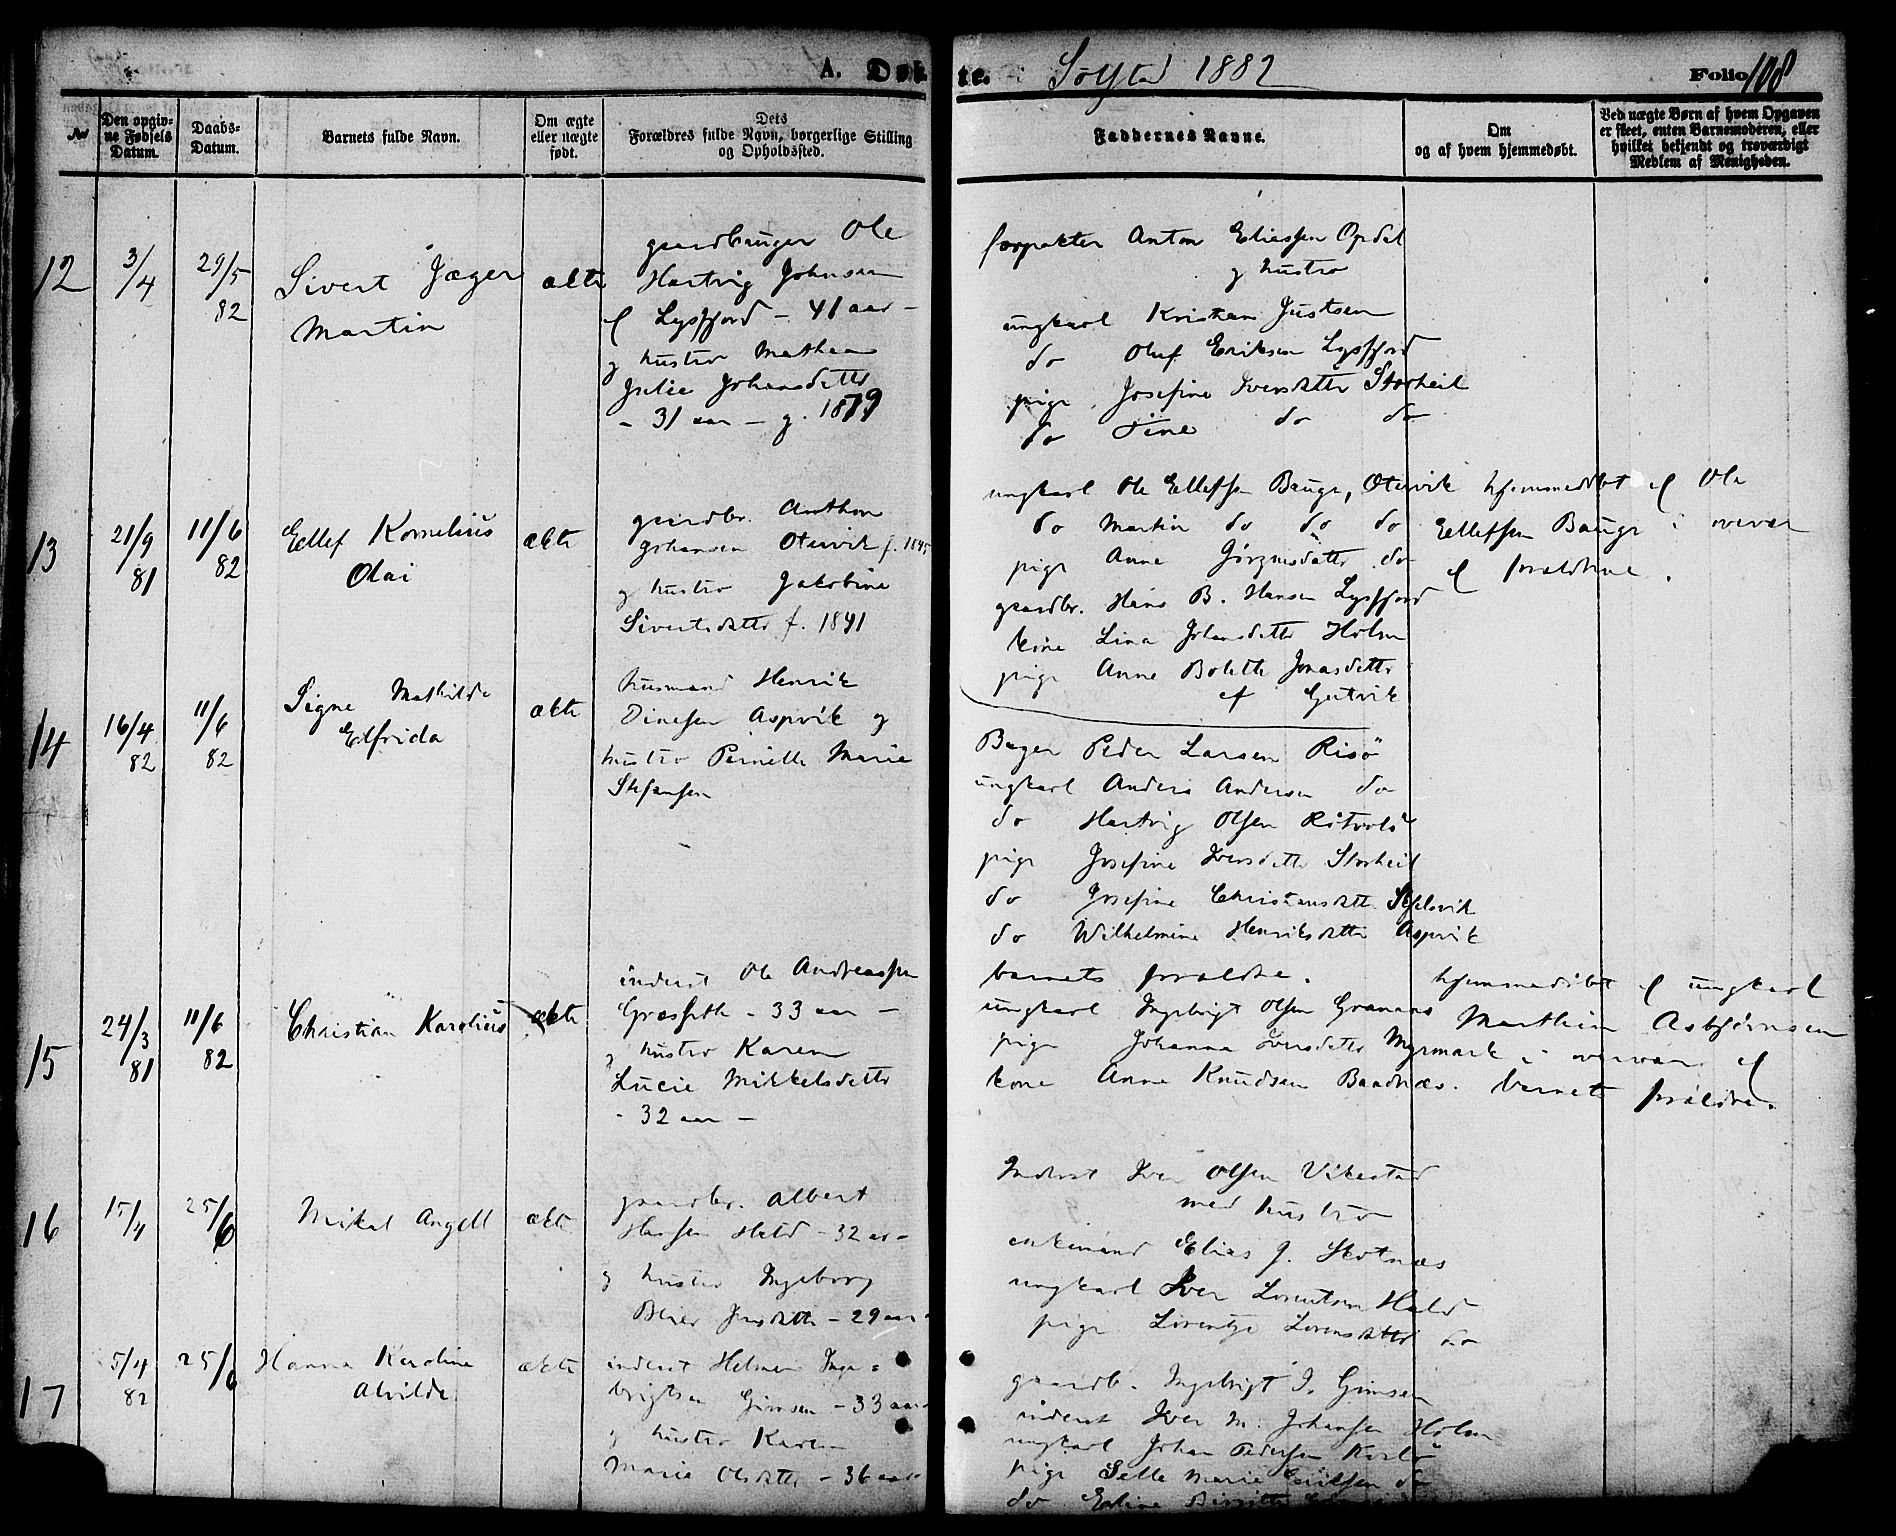 A. Døb
te. Solstad 1882 Folio 108
No
Den opgiv-
ne Fødsels
Datum.
Daabs-
Datum.
Barnets fulde Navn.
Om ægte
eller uægte
født.
Dets
Forældres fulde Navn, borgerlige Stilling
og Opholdssted.
Faddernes Navne.
Om
og af hvem hjemmedøbt.
Ved uægte Børn af hvem Opgaven
er skeet, enten Barnemoderen, eller
hvilket bekjendt og troværdigt
Medlem af Menigheden.
12
3/4
29/5
82
Sivert Jæger
Martin
ækte
gaardbruger Ole
Hartvig Johnsen
af Lysfjord - 41 aar -
og hustru Mathea
Julie Johansdatter
- 31 aar - g. 1879
forpakter Anton Eliassen Opdal
og hustru
ungkarl Kristian Justsen
do Oluf Eriksen Lysfjord
pige Josefine Iversdatter Storheil
do Tine do do
13
21/9
81
11/6
82
Ellef Kornelius
Olai
ækte
gaardbr. Anthon
Johansen Otervik f. 1845
og hustru Jakobine
Sivertsdatter f. 1841
ungkarl Ole Ellefsen Bauge, Otervik
do Martin do do do
pige Anne Jørgensdatter do
gaardbr. Hans B. Hansen Lysfjord
kone Lina Johansdatter Holm
pige Anne Bolette Jonasdatter
af Gutvik
hjemmedøbt af Ole
Ellefsen Bauge i overvær
af forældrene.
14
16/4
82
11/6
82
Signe Mathilde
Elfrida
ækte
husmand Henrik
Dinesen Aspvik og
hustru Pernille Marie
Stefansen
Bager Peder Larsen Risö
ungkarl Anders Andersen do
do Hartvig Olsen
pige Josefine Iversdatter Storheil
do Josefine Christiansdatter
do Wilhelmine Henriksdatter Aspvik
15
24/3
81
11/6
82
Christian Karelius
ækte
inderst Ole Andreassen
Græssetli - 33 aar -
og hustru Karen
Lucie Mikkelsdatter
- 32 aar -
barnets forældre.
ungkarl Ingebrigt Olsen Grannæs
pige Johanna Iversdatter Myrmark
kone Anne Knudsen Baadnæs.
hjemmedöbt af ungkarl
Marthin Asbjörnsen
i overvær af
barnets forældre.
16
15/4
25/6
Mikal Angell
ækte
gaardbr. Albert
Hansen Hald - 32 aar -
og hustru Ingeborg
Berer Jensdatter - 29 aar -
Inderst Iver Olsen Vikestad
med hustru
enkemand Elias J. Skotnæs
ungkarl Iver Lorentsen Hald
pige Lorentze Lorensdatter do
17
5/4
82
25/6
Hanna Karoline
Alvilde
ækte
inderst Helmer Inge-
brigtsen Gimsen - 33 aar -
og hustru Karen
Marie Olsdatter - 36 aar -
gaardb. Ingebrigt I. Gimsen
inderst Iver M. Johansen Holm
ungkarl Johan Pedersen
pige Selle Marie Eriksen do
do Eline